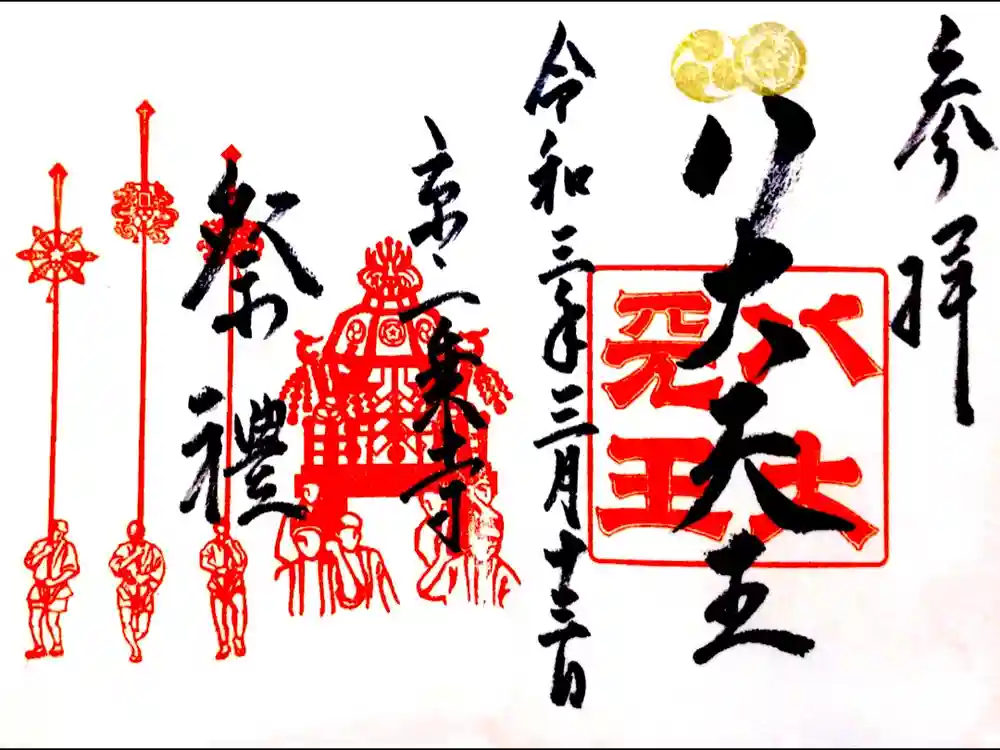 参拝
八大天王
八大
天王
令和三年三月十三日
京、一乗寺
祭禮